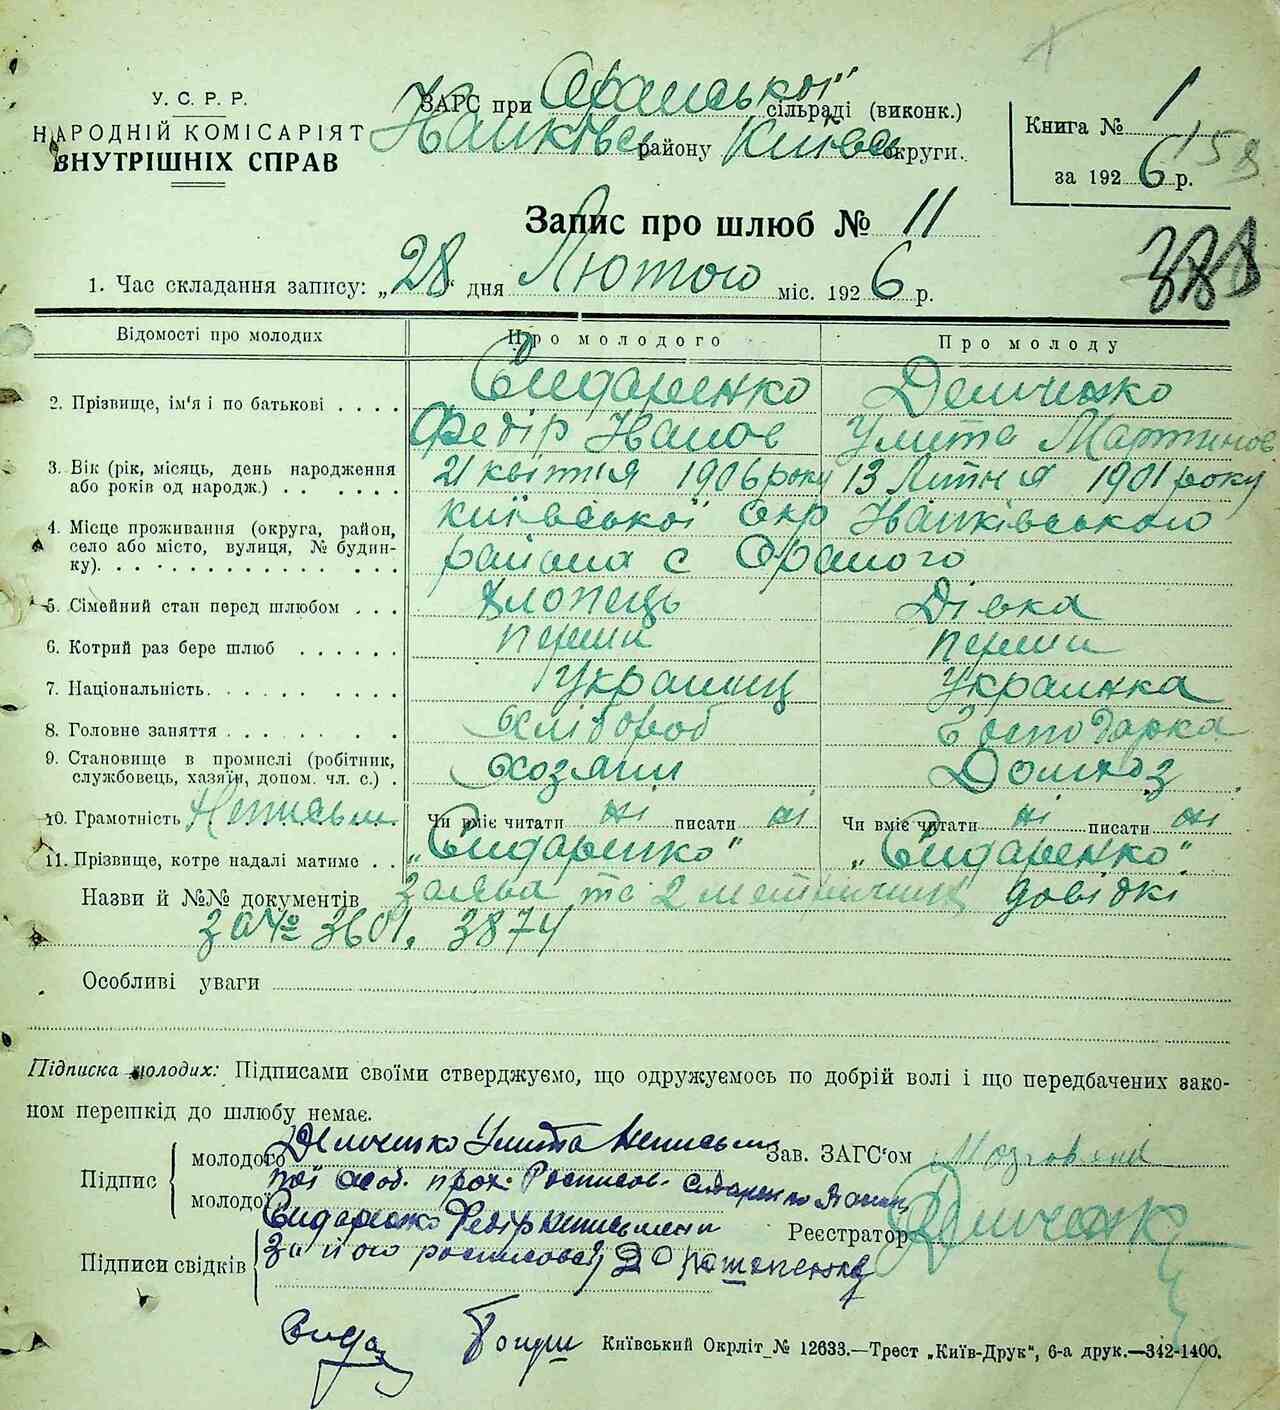 У. С. Р. Р.
НАРОДНІЙ КОМІСАРІЯТ
ВНУТРІШНІХ СПРАВ
ЗАГС при Оранської сільраді (виконк.)
району Київськ округи.
Книга № 1
за 1926 р.
158
388
Запис про шлюб № 11
1. Час складання запису: „28“ дня Лютого міс. 1926 р.
Відомості про молодих Про молодого Про молоду
2. Прізвище, ім'я і по батькові . . . . Сидаренко Демченко
Федір Иванов Улита Мартинов
3. Вік (рік, місяць, день народження або років од народж.) . . . . . . 21 квітня 1906 року 13 Литня 1901 року
4. Місце проживання (округа, район, село або місто, вулиця, № будинку). Київської окр Иванківського
района с Ораного
5. Сімейний стан перед шлюбом . . . хлопець Дівка
6. Котрий раз бере шлюб . . . . . . перши перши
7. Національність. . . . . . . . . . Украинц Украинка
8. Головне заняття . . . . . . . . Хлібороб Господарка
9. Становище в промислі (робітник, службовець, хазяїн, допом. чл. с.) . Хозяин Домхоз
10. Грамотність Неписьм. Чи вміє читати ні писати ні Чи вміє читати ні писати ні
11. Прізвище, котре надалі матиме . . „Сидаренко“ „Сидаренко“
Назви й №№ документів заява та 2 метричних довідкі
за № 3601. 3874
Особливі уваги
Підписка молодих: Підписами своїми стверджуємо, що одружуємось по добрій волі і що передбачених зако-
ном перешкід до шлюбу немає.
Підпис молодого Демченко Улита неписьмен Зав. ЗАГС'ом
молодої
Сидаренко Федір неписьмени Реєстратор Демченко
Підписи свідків за його росписовся
Київський Окрліт № 12633.—Трест „Київ-Друк“, 6-а друк.—342-1400.